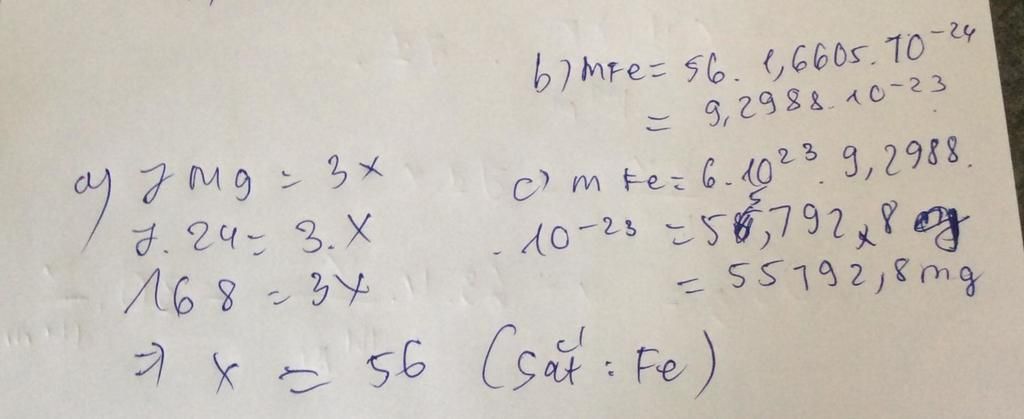 a) 7 Mg = 3x
7. 24 = 3.x
168 = 3x
=> x = 56 (Sắt : Fe)
b) mFe = 56. 1,6605. 10⁻²⁴
= 9,2988. 10⁻²³
c) m Fe = 6. 10²³. 9,2988.
. 10⁻²³ = 55,792,8 g
= 55792,8 mg